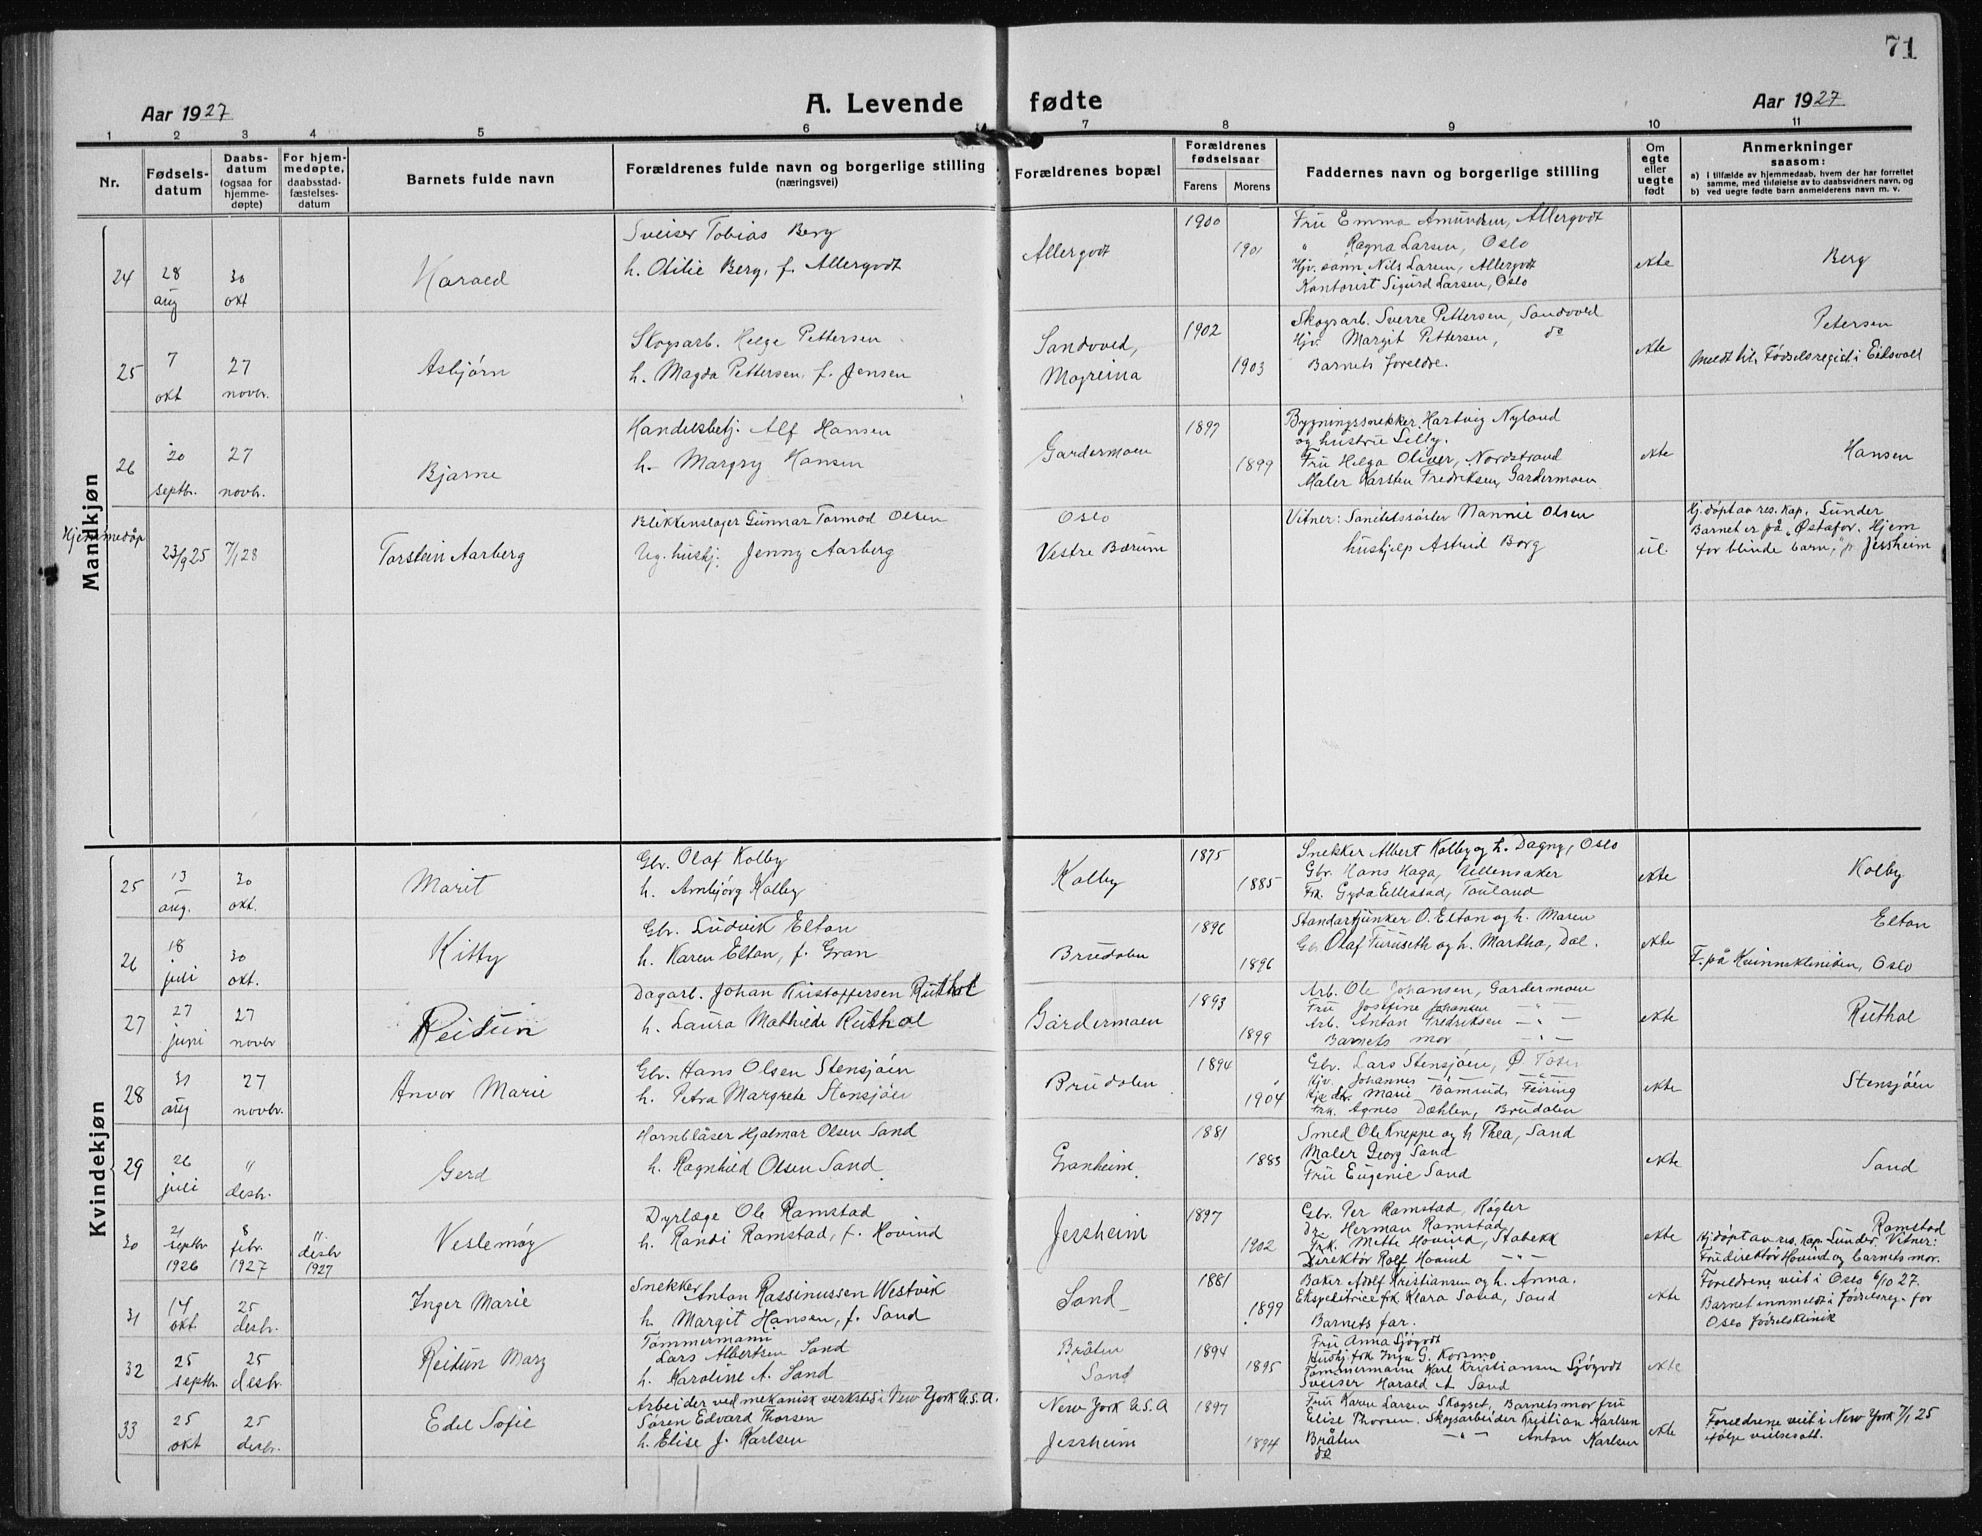 71
Aar 1927
A. Levende fødte
Aar 1927
1 2 3 4 5 6 7 8 9 10 11
Nr.
Fødselsdatum
Daabsdatum (ogsaa for hjemmedøpte)
For hjemmedøpte, daabsstadfæstelsesdatum
Barnets fulde navn
Forældrenes fulde navn og borgerlige stilling
(næringsvei)
Forældrenes bopæl
Forældrenes fødselsaar
Farens Morens
Faddernes navn og borgerlige stilling
Om egte eller uegte født
Anmerkninger
saasom:
a) I tilfælde av hjemmedaab, hvem der har forrettet
samme, med tilføielse av to daabsvidners navn, og
b) ved uegte fødte barn anmelderens navn m. v.
Mandkjøn
24 28 aug 30 okt Harald
Sveiser Tobias Berg
h. Otilie Berg, f. Allergodt
Allergodt 1900 1901
Fru Emma Amundsen, Allergodt
" Ragna Larsen, Oslo
Hjv. sønn Nils Larsen, Allergodt
Kontorist Sigurd Larsen, Oslo
ekte Berg
25 7 okt 27 novbr. Asbjørn
Skogsarb. Helge Pettersen
h. Magda Pettersen, f. Jensen
Sandvold,
Mogreina
1902 1903
Skogsarb. Sverre Pettersen, Sandvold
Hjv. Margit Pettersen, do
Barnets foreldre.
ekte Petersen
Meldt til Fødselsregist i Eidsvold
26 20 septbr. 27 novbr. Bjarne
Handelsbetj. Alf Hansen
h. Margry Hansen
Gardermoen 1897 1899
Bygningssnekker Hartvig Nyland
og hustru Lilly.
Fru Helga Oliver, Nordstrand
Maler Karsten Fredriksen, Gardermoen
ekte Hansen
Hjemmedøp 23/9 25 7/1 28 Torstein Aarberg
Blikkenslager Gunnar Tormod Olsen
Ug. hushj. Jenny Aarberg
Oslo
Vestre Bærum
Vitner: Sanitetssøster Nannie Olsen
hushjelp Astrid Borg
u.
Hj. døpt av res. kap. Lunder
Barnet er på "Østafor. Hjem
for blinde barn," p. Jessheim
Kvindekjøn
25 13 aug. 30 okt. Marit
Gbr. Olaf Kolby
h. Arnbjørg Kolby
Kolby 1875 1885
Snekker Albert Kolby og h. Dagny, Oslo
Gbr. Hans Haga, Ullensaker
Frk. Gyda Ellestad,
ekte Kolby
26 18 juli 30 okt. Kitty
Gbr. Ludvik Elton
h. Karen Elton, f. Gran
Brudalen 1896 1896
Standartjunker O. Elton og h. Maren
Gbr Olaf Furuseth og h. Martha, Dal.
ekte Elton
F. på Kvinneklinikken, Oslo
27 27 juni 27 novbr Reidun
Dagarb. Johan Kristoffersen Ruthol
h. Laura Mathilde Ruthol
Gardermoen 1893 1899
Arb. Ole Johansen, Gardermoen
Fru Josefine Johansen — " —
Arb. Anton Fredriksen — " —
Barnets mor — " —
ekte Ruthol
28 31 aug 27 novbr. Anvor Marie
Gbr. Hans Olsen Stensjøen
h. Petra Margrete Stensjøen
Brudalen 1894 1904
Gbr. Lars Stensjøen, Ø Toten
Hjv. Johannes — " —
Marie Feiring
Frk. Agnes Dæhlen, Brudalen
ekte Stensjøen
29 26 juli 11 desbr. Gerd
Hornblåser Hjalmar Olsen Sand
h. Ragnhild Olsen Sand
Granheim 1881 1883
Smed Ole Kneppe og h Thea, Sand
Maler Georg Sand
Fru Eugenie Sand
ekte Sand
30 21 septbr 1926 8 febr. 1927 11. desbr 1927 Veslemøy
Dyrlæge Ole Ramstad
h. Randi Ramstad, f. Hovind
Jessheim 1897 1902
Gbr. Per Ramstad, Røgler
Dr. Herman Ramstad
Frk. Mette Hovind, Stabekk
Direktør Rolf Hovind — " —
ekte Ramstad
Hj. døpt av res. kap. Lunder. Vitner:
Fru direktør Hovind og barnets mor.
31 14 okt. 25 desbr. Inger Marie
Snekker Anton Rassinussen Westvik
h. Margit Hansen, f. Sand
Sand 1881 1899
Baker Adolf Kristiansen og h. Anna.
Ekspeditrice frk Klara Sand, Sand
Barnets far.
ekte
Foreldrene viet i Oslo 6/10 27.
Barnet innmeldt i fødselsreg. for
Oslo fødselsklinik
32 25 septbr. 25 desbr. Reidun Mary
Tømmermann
Lars Albertsen Sand
h. Karoline A. Sand
Bråten
Sand
1894 1895
Fru Anna Sjøgodt
Hushj frk Inga G. Korsmo
Tømmermann Karl Kristiansen Sjøgodt
Sveiser Harald A Sand
ekte
33 25 okt 25 desbr. Edel Sofie
Arbeider ved mekanisk verksted i New York U.S.A.
Søren Edvard Thorsen
h. Elise J. Karlsen
New York U.S.A
Jessheim
1897 1894
Fru Karen Larsen Skogset, Barnets mor fru
Elise Thorsen. Skogsarbeider Kristian Karlsen
Bråten — " — Anton Karlsen
do
ekte
Foreldrene viet i New York 7/1 25
ifølge vielsesatt.